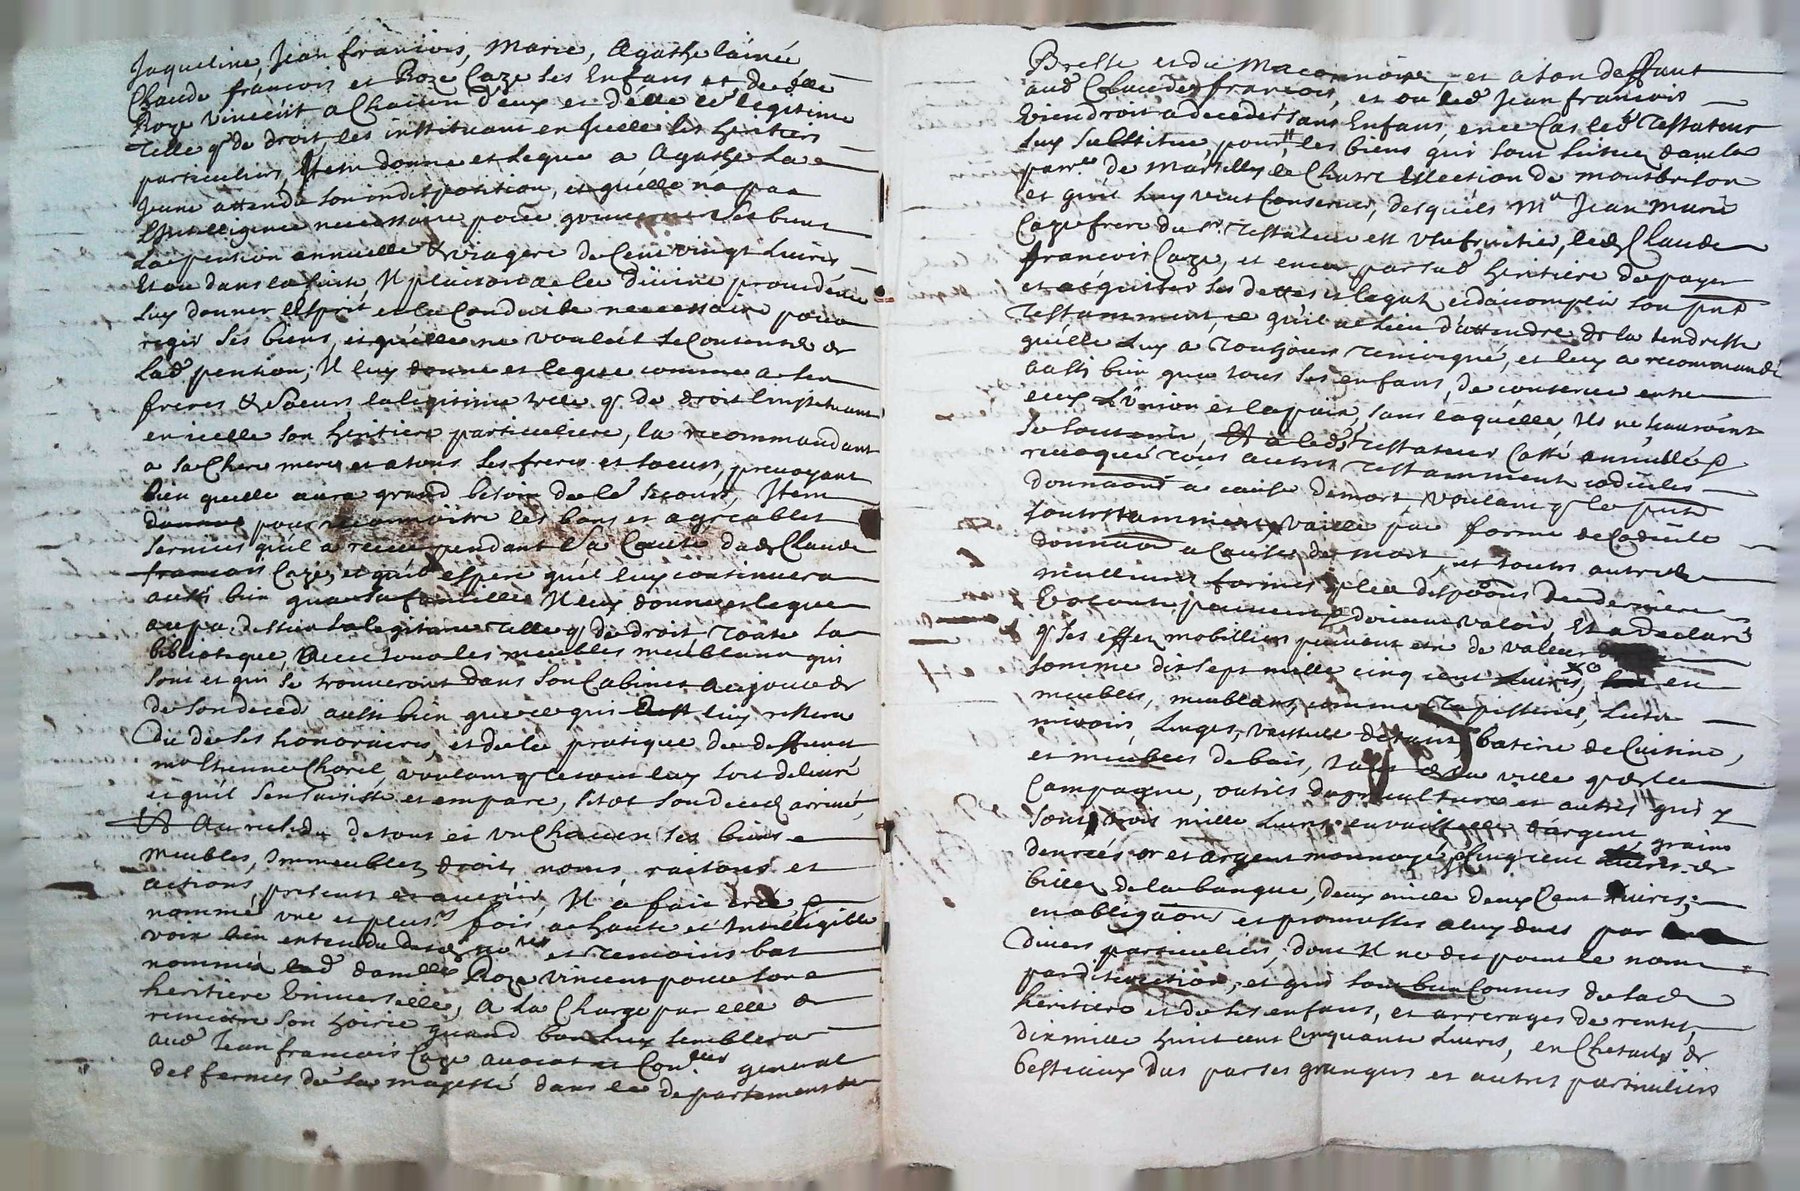 Jaqueline, Jean francois, Marie, Agathe lainée
Claude francois et Roze Caze ses Enfans et de lad
Roze vincent a Chacun d'eux et d'elle le legitime
telle q de droit, les instituant en Icelle ses heritiers
particuliers, Item donne et legue a Agathe la
jeune attendu son indisposition, et qu'elle n'a pas
l'Intelligence necessaire pour gouverner ses biens
la pention annuelle & viagere de Cent vingt Livres
Et ou dans la suite Il plairoit a la divine providence
luy donner l'Esprit et la Conduite necessaire pour
regir ses biens, et qu'elle ne voulut se Contenter de
lad pention, Il luy donne et legue comme a ses
freres & Soeurs la legitime telle q de droit l'instituant
en icelle son heritiere particuliere, la recommandant
a sa Chere mere et a tous ses freres et soeurs, prevoyant
bien quelle aura grand besoin de le secours, Item
donne pour reconnoitre les bons et agreables
services qu'il a receu pendant sa dud Claude
francois Caze, et qu'il espere qu'il luy continuera
aussi bien qu'a sa famille Il luy donne et legue
au pa dessus la legitime telle q de droit toute sa
biblioteque, avec tous les meubles meublans qui
sont et qui se trouveront dans son Cabinet au jour de
de son deced, aussi bien que ce qui luy restera
du de ses honoraires, et de la pratique du deffunt
me Etienne Charel, voulant q le tout luy soit delivré
et qu'il s'en saisisse et empare, sitot son deced arrivé,
Et Au residu de tous et un Chacun ses biens
meubles, Immeubles, droits, noms, raisons et
actions, presents et avenir, Il a fait créé &
nommé une et plus.rs fois a haute et Intelligible
voix bien entendu desd no.res et temoins bas
nommés lad damelle Roze vincent pour son
heritiere Universelle, a la Charge par elle de
remettre son hoirie quand bon luy semblera
aud Jean francois Caze avocat et Con.ler general
des fermes de sa majesté dans le departement de
Bresse et du Maconnois, et a son deffaut
aud Claude francois, et ou led Jean francois
Viendroit a deceder sans Enfans, en ce Cas led Testateur
luy substitue, pour les biens qui sont situés dans la
parr.e de Marsilly le Chatre Election de montbrison
et qu'il luy veut Conserver, desquels M.e Jean Marie
Caze frere du s.r Testateur est Usufruitier, led Claude
francois Caze, et encor par sad heritiere de payer
et acquitter ses dettes et legats et d'acomplir son pnt
Testamment, ce qu'il a lieu d'attendre de la tendresse
qu'elle luy a toujours temoigné, et luy a recommandé
aussi bien que tous ses enfans, de conserver entre
eux L'union et la paix, sans laquelle, Ils ne scauroint
se soutenir, Et a led s.r Testateur Cassé annullé &
revoqué tous autres Testamment codicilles
donnaons a cause de mort, Voulant q le pnt
son testamment, vaille par forme de Codicille
donnaon a Cause de mort, et toutes autres
meilleures formes q les dispoons de derniere
Volonté peuvent & doivent valoir, Et a declaré
q ses effets mobilliers peuvent etre de valeur
somme dix sept mille cinq cent Livres, en
meubles, meublans, comme Tapisseries, Lits
mirois, Linges, vaisselle d'etain, baterie de Cuisine,
et meubles de bois, tant de la ville que de la
Campagne, outils d'agriculture et autres qui y
sont, trois mille Livres, en vaisselle d'argent, grains
denrées or et argent monnoyé, Cinq cent Livres de
billet de la banque, deux mille deux Cent Livres,
en obligaons et promesses a luy dues par
divers particuliers, dont Il ne dit point le nom
par discretion, et qui sont bien Connus de lad
heritiere et de ses enfans, et arrerages de rentes,
dix mille huit cent Cinquante Livres, en Cheteils de
bestiaux dus par ses grangers et autres particuliers